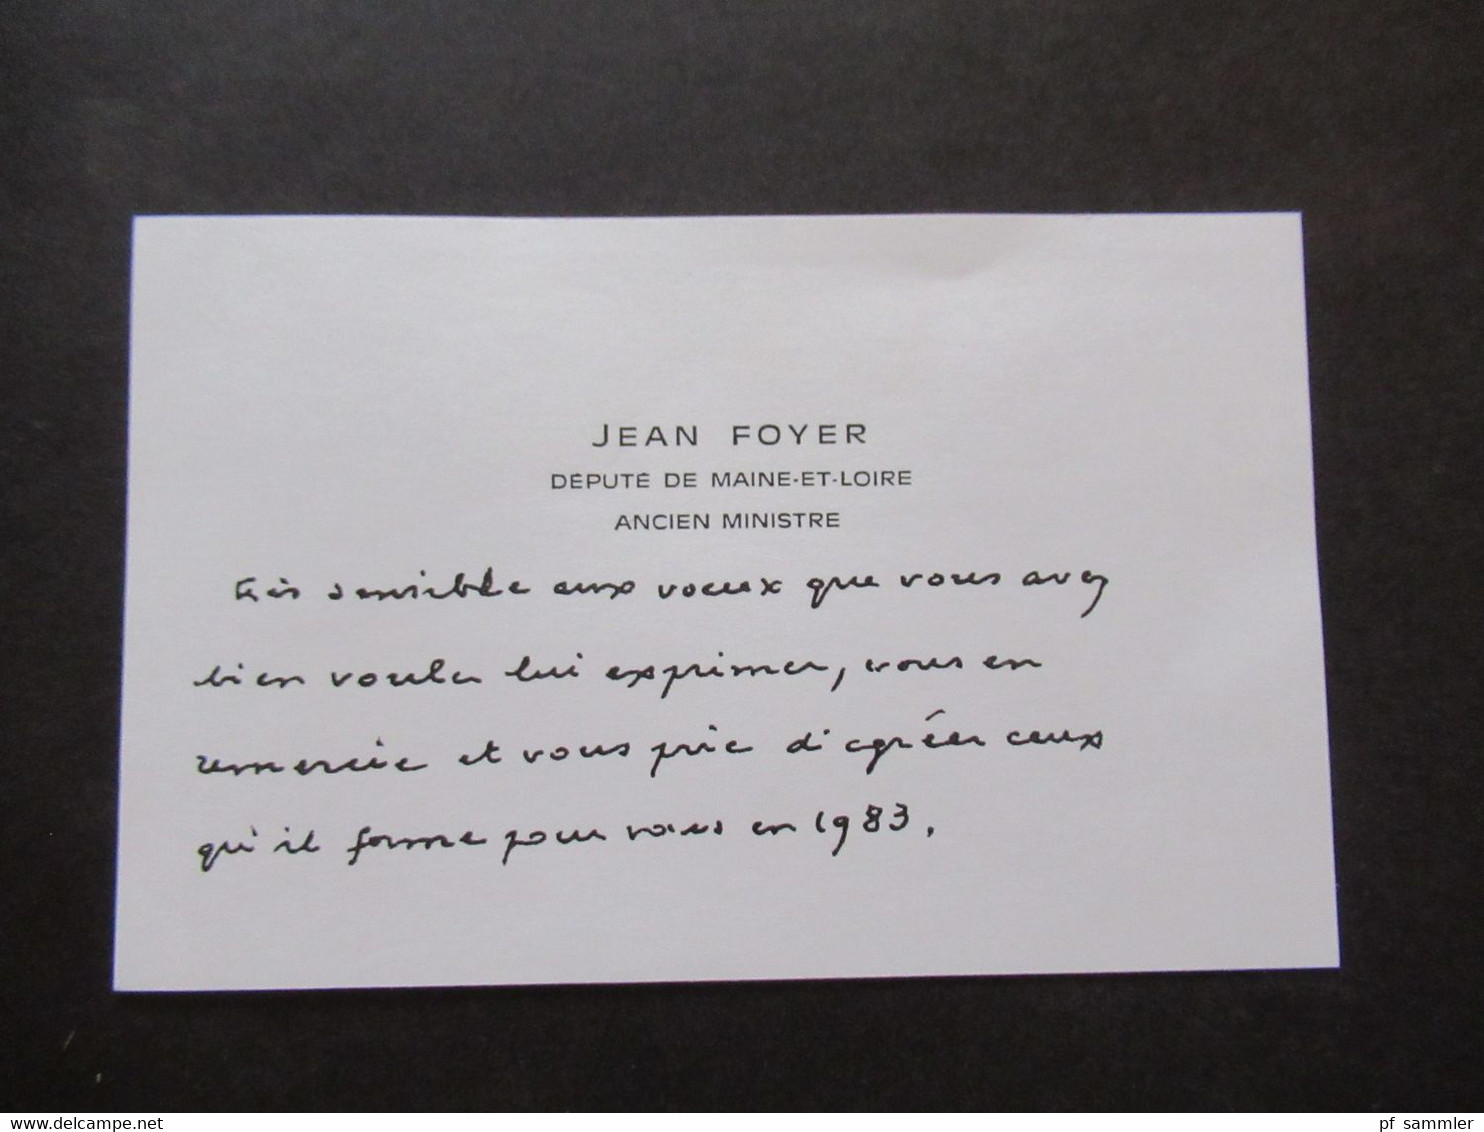 JEAN FOYER
DÉPUTÉ DE MAINE-ET-LOIRE
ANCIEN MINISTRE
très sensible aux voeux que vous avez
bien voulu lui exprimer, vous en
remercie et vous prie d'agréer ceux
qu'il forme pour vous en 1983.
www.delcampe.net
pf_sammler